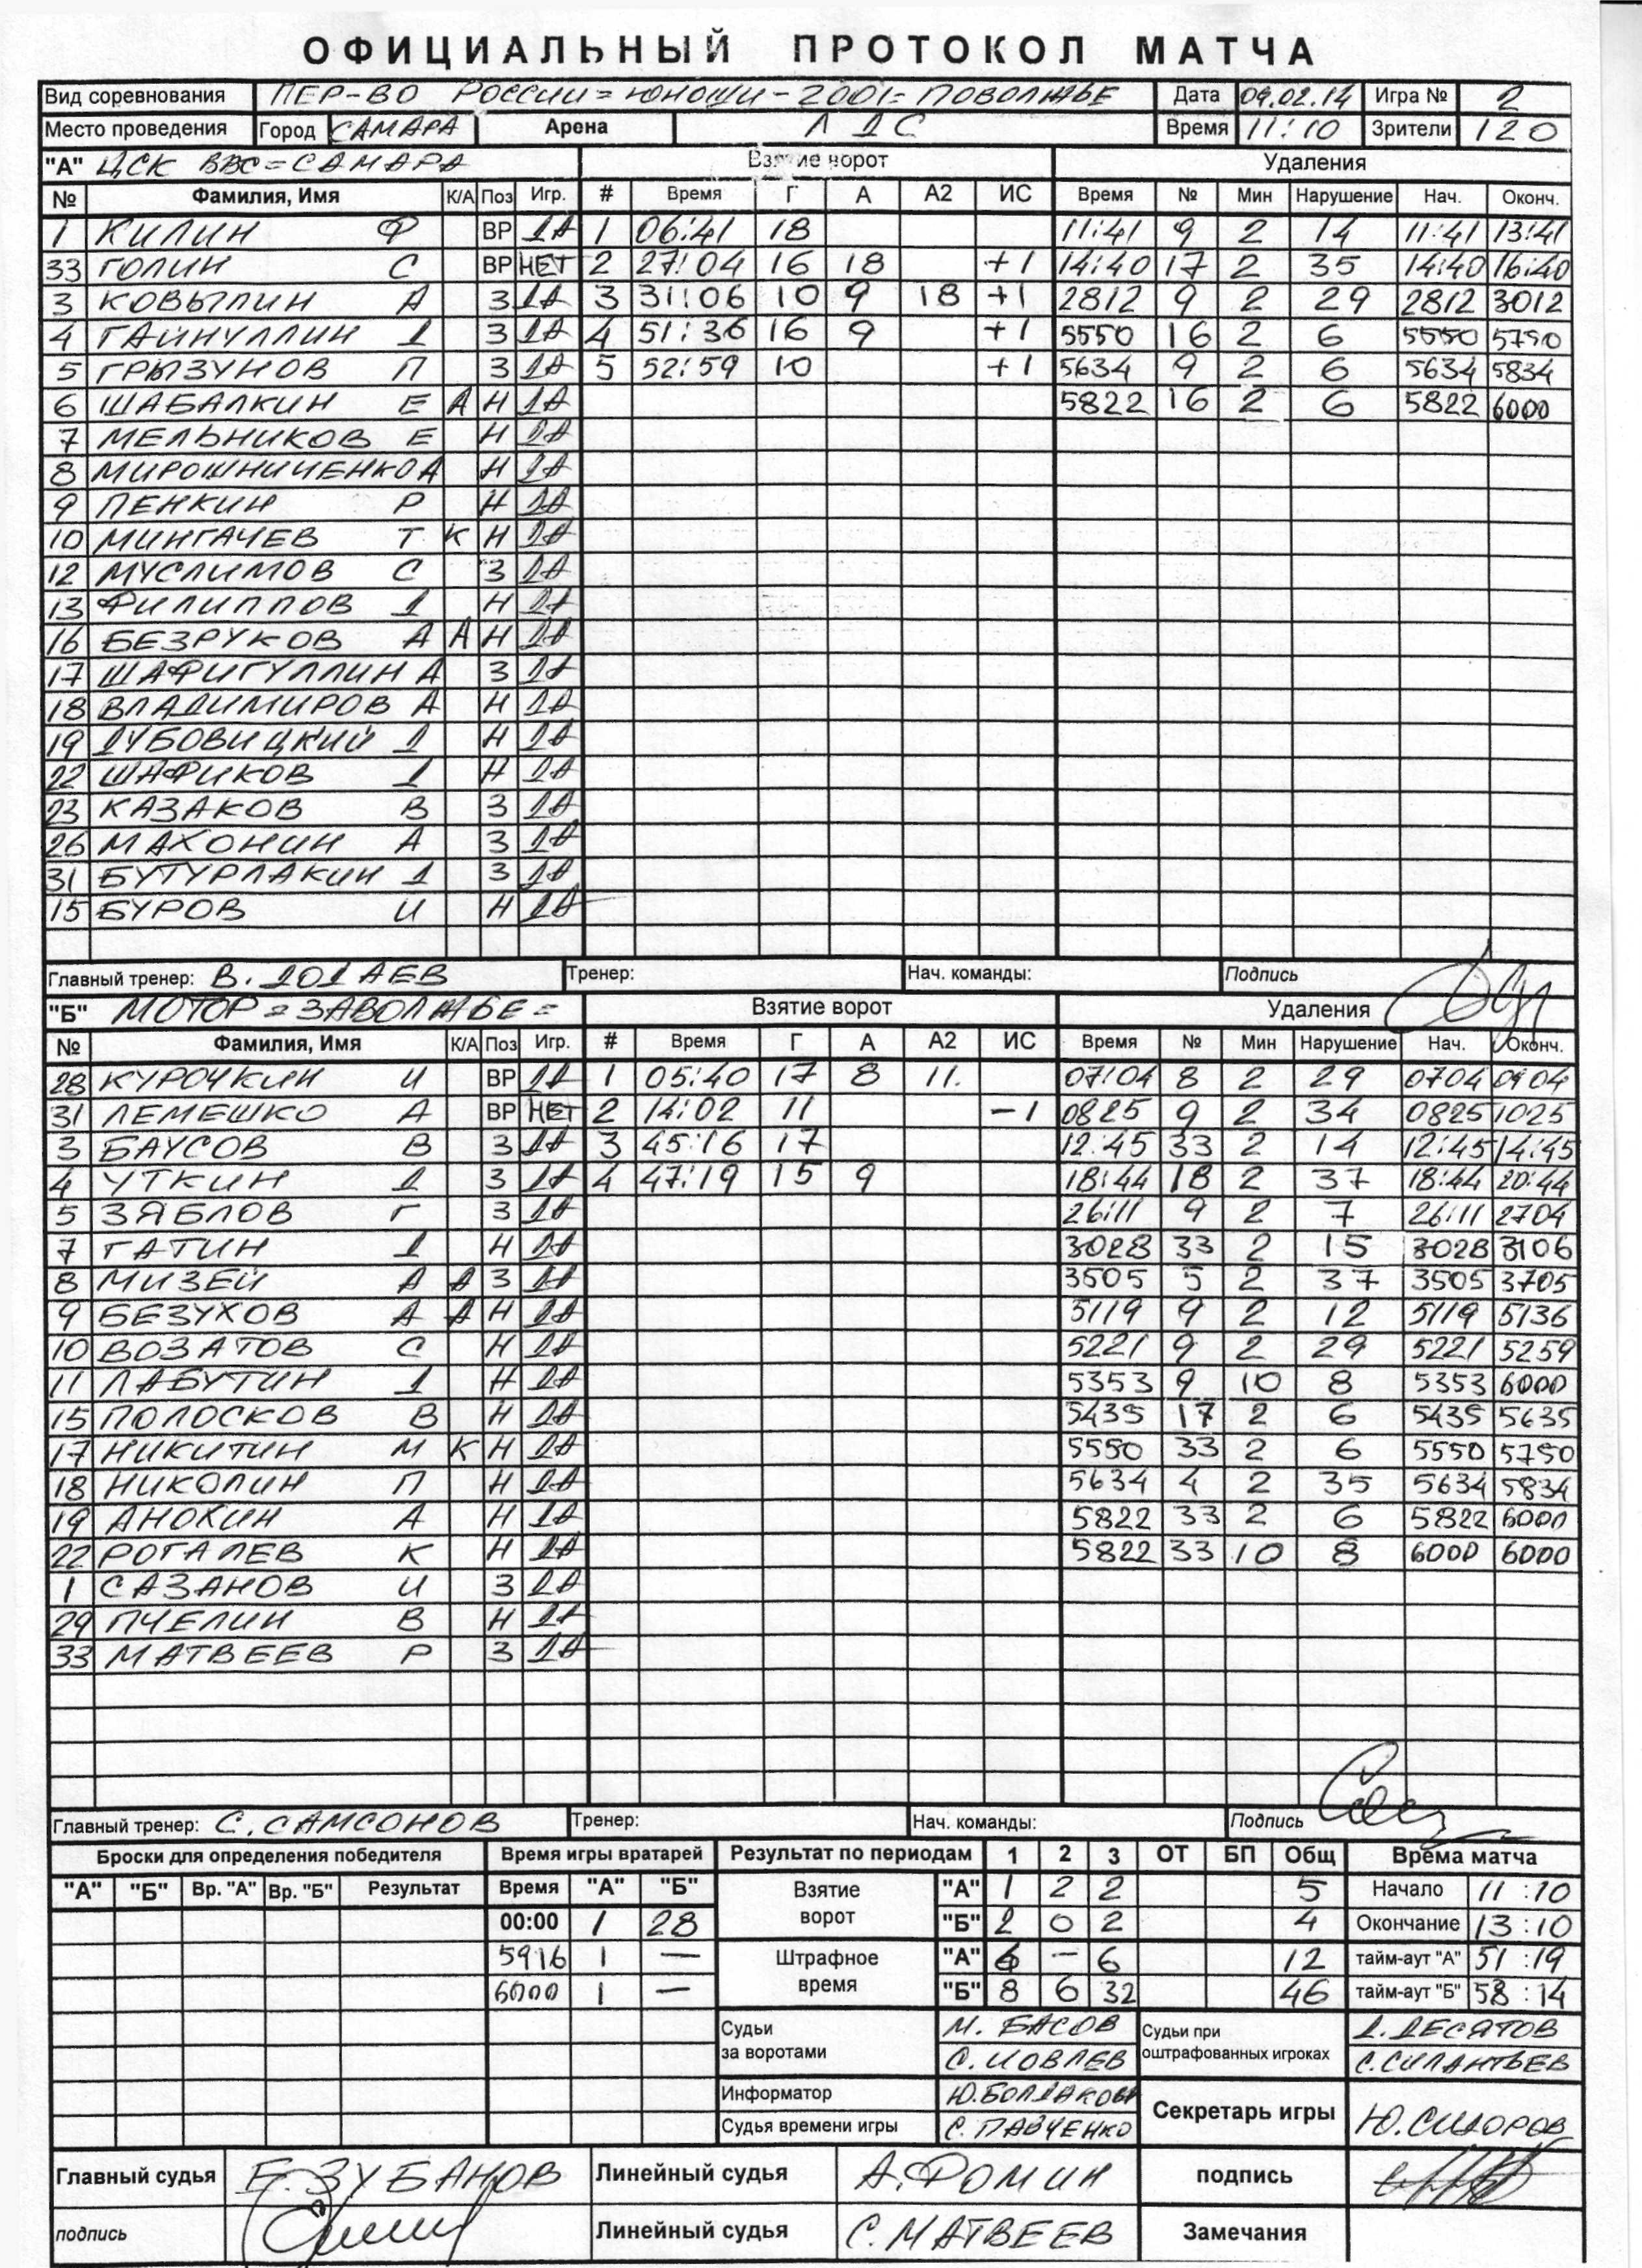 ОФИЦИАЛЬНЫЙ ПРОТОКОЛ МАТЧА
Вид соревнования ПЕР-ВО РОССИИ=ЮНОШИ-2001=ПОВОЛЖЬЕ Дата 09.02.14 Игра № 2
Место проведения Город САМАРА Арена ЛДС Время 11:10 Зрители 120
"А" ЦСК ВВС=САМАРА Взятие ворот Удаления
№ Фамилия, Имя К/А Поз Игр. # Время Г А А2 ИС Время № Мин Нарушение Нач. Оконч.
1 КИЛИН Ф ВР ДА 1 06:41 18 11:41 9 2 14 11:41 13:41
33 ГОЛИН С ВР НЕТ 2 27:04 16 18 +1 14:40 17 2 35 14:40 16:40
3 КОВЫЛИН А З ДА 3 31:06 10 9 18 +1 2812 9 2 29 2812 3012
4 ГАЙНУЛЛИН Д З ДА 4 51:36 16 9 +1 5550 16 2 6 5550 5750
5 ГРЫЗУНОВ П З ДА 5 52:59 10 +1 5634 9 2 6 5634 5834
6 ШАБАЛКИН Е А Н ДА 5822 16 2 6 5822 6000
7 МЕЛЬНИКОВ Е Н ДА
8 МИРОШНИЧЕНКО А Н ДА
9 ПЕНКИН Р Н ДА
10 МИНГАЧЕВ Т К Н ДА
12 МУСЛИМОВ С З ДА
13 ФИЛИППОВ Д Н ДА
16 БЕЗРУКОВ А А Н ДА
17 ШАФИГУЛЛИН А З ДА
18 ВЛАДИМИРОВ А Н ДА
19 ДУБОВИЦКИЙ Д Н ДА
22 ШАФИКОВ Д Н ДА
23 КАЗАКОВ В З ДА
26 МАХОНИН А З ДА
31 БУТУРЛАКИН Д З ДА
15 БУРОВ И Н ДА
Главный тренер: В. ДОДАЕВ Тренер: Нач. команды: Подпись
"Б" МОТОР=ЗАВОЛЖЬЕ= Взятие ворот Удаления
№ Фамилия, Имя К/А Поз Игр. # Время Г А А2 ИС Время № Мин Нарушение Нач. Оконч.
28 КУРОЧКИН И ВР ДА 1 05:40 17 8 11. 07:04 8 2 29 0704 0904
31 ЛЕМЕШКО А ВР НЕТ 2 14:02 11 -1 0825 9 2 34 0825 1025
3 БАУСОВ В З ДА 3 45:16 17 12:45 33 2 14 12:45 14:45
4 УТКИН Д З ДА 4 47:19 15 9 18:44 18 2 37 18:44 20:44
5 ЗЯБЛОВ Г З ДА 26:11 9 2 7 26:11 2704
7 ГАТИН Д Н ДА 3028 33 2 15 3028 3106
8 МИЗЕЙ А А З ДА 3505 5 2 37 3505 3705
9 БЕЗУХОВ А А Н ДА 5119 9 2 12 5119 5136
10 ВОЗАТОВ С Н ДА 5221 9 2 29 5221 5259
11 ЛАБУТИН Д Н ДА 5353 9 10 8 5353 6000
15 ПОЛОСКОВ В Н ДА 5435 17 2 6 5435 5635
17 НИКИТИН М К Н ДА 5550 33 2 6 5550 5750
18 НИКОЛИН П Н ДА 5634 4 2 35 5634 5834
19 АНОХИН А Н ДА 5822 33 2 6 5822 6000
22 РОГАЛЕВ К Н ДА 5822 33 10 8 6000 6000
1 САЗАНОВ И З ДА
29 ПЧЕЛИН В Н ДА
33 МАТВЕЕВ Р З ДА
Главный тренер: С. САМСОНОВ Тренер: Нач. команды: Подпись
Броски для определения победителя Время игры вратарей Результат по периодам 1 2 3 ОТ БП Общ Время матча
"А" "Б" Вр. "А" Вр. "Б" Результат Время "А" "Б" Взятие ворот "А" 1 2 2 5 Начало 11:10
00:00 1 28 "Б" 2 0 2 4 Окончание 13:10
5916 1 — Штрафное время "А" 6 - 6 12 тайм-аут "А" 51:19
6000 1 — "Б" 8 6 32 46 тайм-аут "Б" 58:14
Судьи за воротами М. БАСОВ Судьи при оштрафованных игроках Д. ДЕСЯТОВ
О. ИОВЛЕВ С. СИЛАНТЬЕВ
Информатор Ю. БОЛДАКОВ Секретарь игры Ю. СИДОРОВ
Судья времени игры С. ПАВЧЕНКО
Главный судья Е. ЗУБАНОВ Линейный судья А. ФОМИН подпись
подпись Линейный судья С. МАТВЕЕВ Замечания